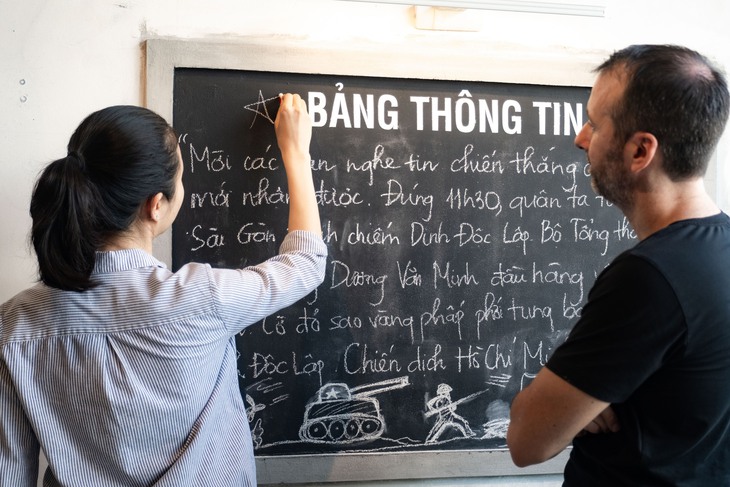 BẢNG THÔNG TIN
"Mời các nghe tin chiến thắng
mới nhận được. Đúng 11h30, quân ta
Sài Gòn chiếm Dinh Độc Lập. Bộ Tổng
Dương Văn Minh đầu hàng
Cờ đỏ sao vàng phấp phới tung
Độc Lập. Chiến dịch Hồ Chí